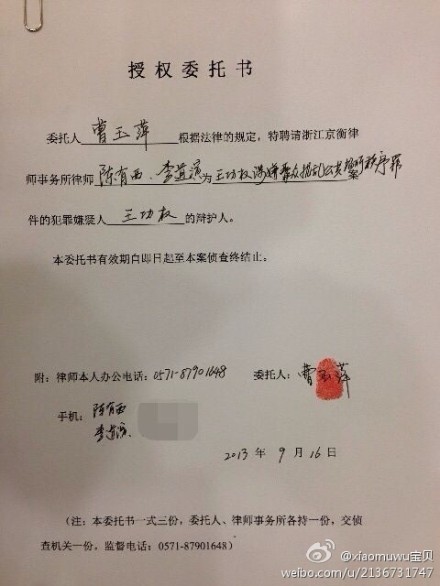 授权委托书
委托人 曹玉萍 根据法律的规定，特聘请浙江京衡律
师事务所律师 陈有西、李道演 为 王功权涉嫌聚众扰乱公共场所秩序罪 案
件的犯罪嫌疑人 王功权 的辩护人。
本委托书有效期自即日起至本案侦查终结止。
附：律师本人办公电话：0571-87901648 委托人：曹玉萍
手机：陈有西
李道演
2013 年 9 月 16 日
（注：本委托书一式三份，委托人、律师事务所各持一份，交侦
查机关一份，监督电话：0571-87901648）
@xiaomuwu宝贝
weibo.com/u/2136731747